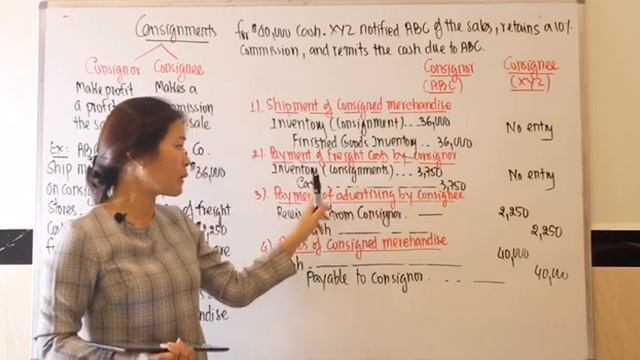 Consignments
Consignor Consignee
Make profit Makes a
a profit commission
the sale
Ex: Co.
Ship 36,000
on consig
Stores. of freight
Cos 250
are
ndise
for $40,000 cash. XYZ notified ABC of the sales, retains a 10%
Commission, and remits the cash due to ABC.
Consignor Consignee
(ABC) (XYZ)
1). Shipment of Consigned merchandise
Inventory (Consignment)... 36,000
Finished Goods Inventory.. 36,000
No entry
2). Payment of freight Costs by Consignor
Inventory (Consignments)... 3,750
Cas 3,750
No entry
3). Payment of advertising by Consignee
Recei from Consignor. 2,250
sh 2,250
4). es of Consigned merchandise
sh 40,000
Payable to Consignor... 40,000